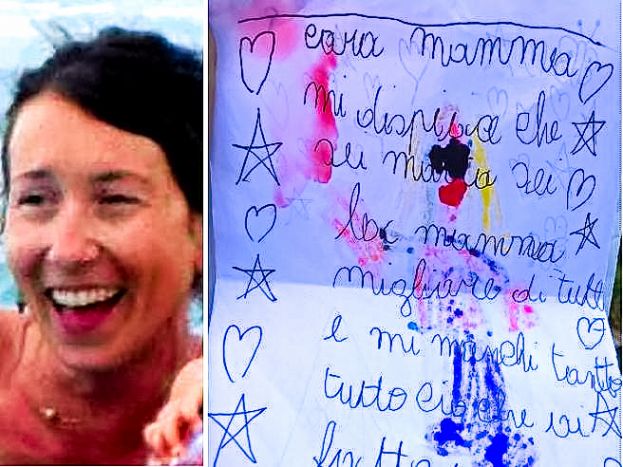 cara mamma
mi dispiace che
sei morta sei
la mamma
migliore di tutti
e mi manchi tanto
tutto ciò che ai
fatto